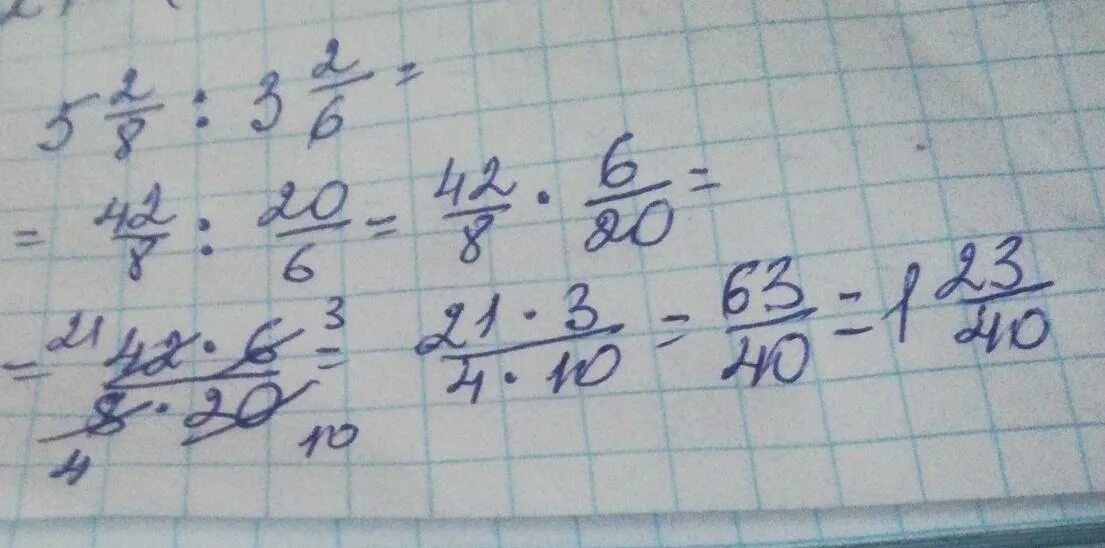 5 2/8 : 3 2/6 =
= 42/8 : 20/6 = 42/8 · 6/20 =
= 21 42 · 6 3 / 8 · 20 4 10 = 21 · 3 / 4 · 10 = 63/40 = 1 23/40